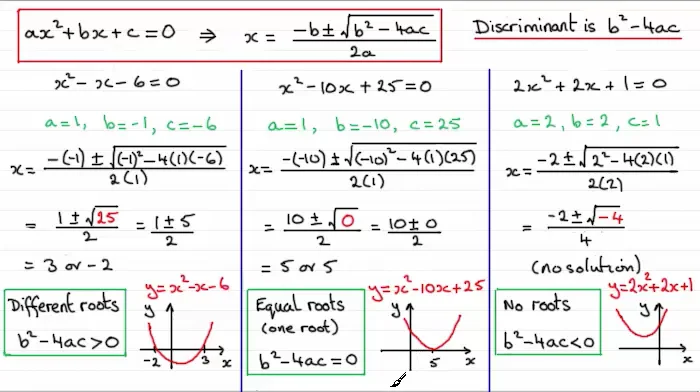 ax² + bx + c = 0 ⇒ x = (-b ± √(b² - 4ac)) / 2a
Discriminant is b² - 4ac
x² - x - 6 = 0
a = 1, b = -1, c = -6
x = (-(-1) ± √((-1)² - 4(1)(-6))) / 2(1)
= (1 ± √25) / 2 = (1 ± 5) / 2
= 3 or -2
Different roots
b² - 4ac > 0
y = x² - x - 6
y
-2 3 x
x² - 10x + 25 = 0
a = 1, b = -10, c = 25
x = (-(-10) ± √((-10)² - 4(1)(25))) / 2(1)
= (10 ± √0) / 2 = (10 ± 0) / 2
= 5 or 5
Equal roots
(one root)
b² - 4ac = 0
y = x² - 10x + 25
y
5 x
2x² + 2x + 1 = 0
a = 2, b = 2, c = 1
x = (-2 ± √(2² - 4(2)(1))) / 2(2)
= (-2 ± √-4) / 4
(no solution)
No roots
b² - 4ac < 0
y = 2x² + 2x + 1
y
x